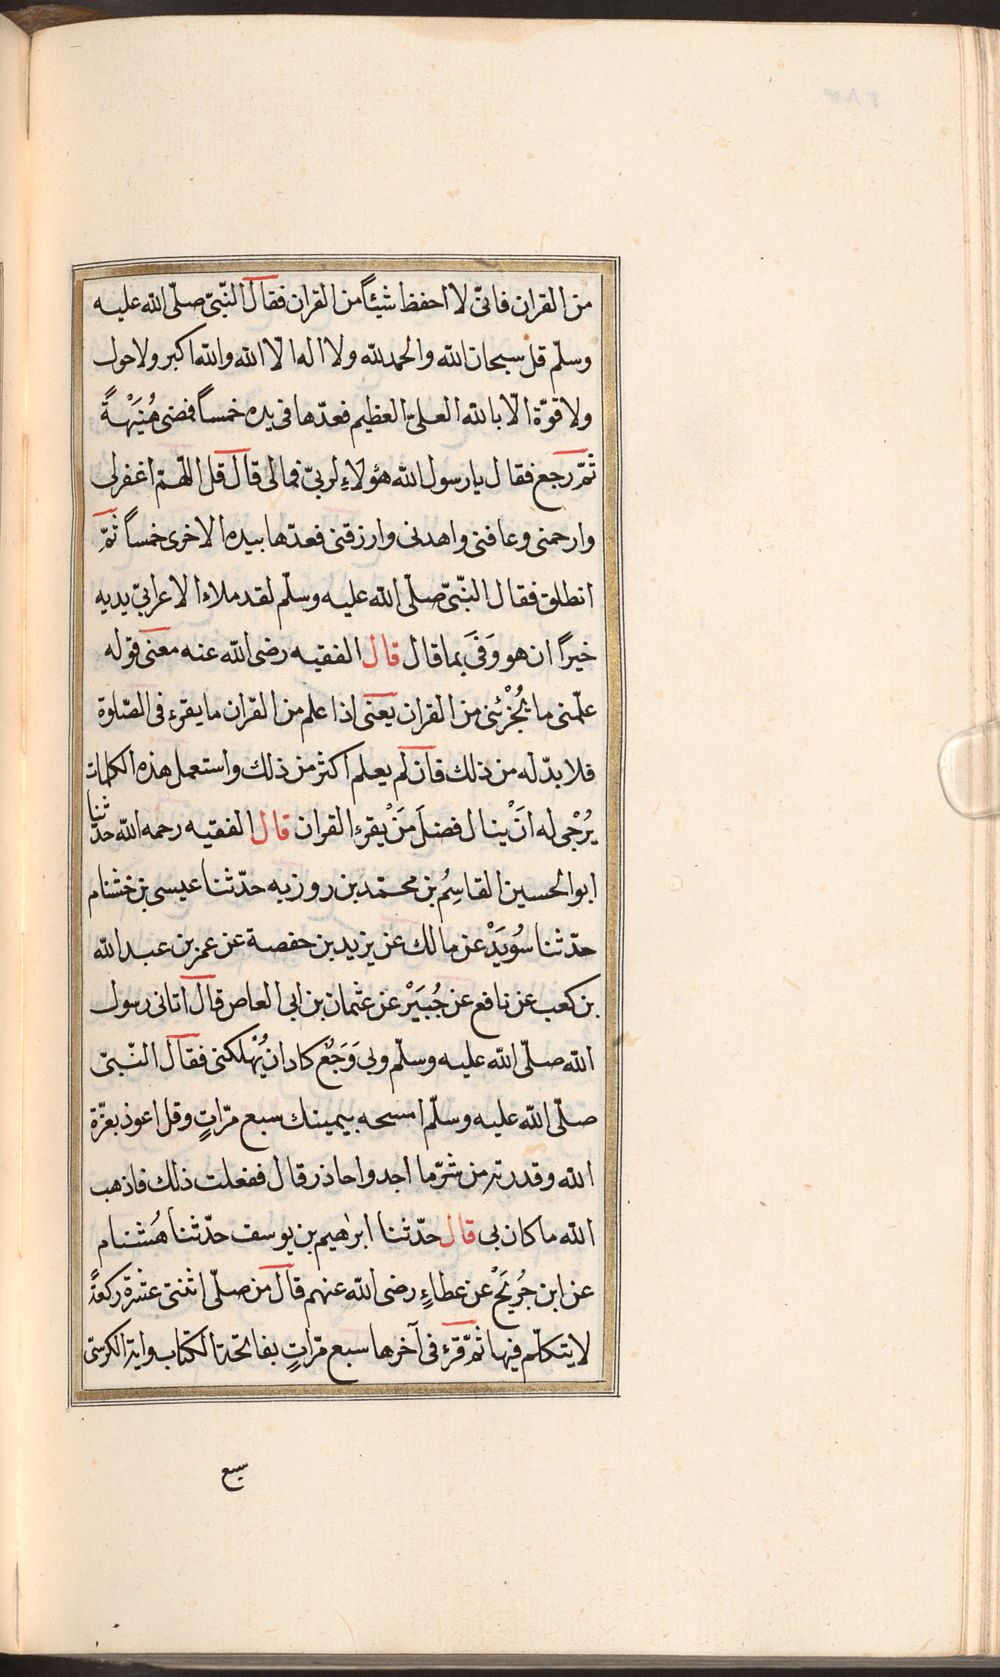 من القران فانىّ لا احفظ شيئاً من القران فقال النّبىّ صلّى الله عليه
وسلّم قل سبحان الله والحمد لله ولا اله الا الله والله اكبر ولا حول
ولا قوّة الّا بالله العلىّ العظيم فعدّها فى يده خمساً فمضى هُنَيْهَةً
ثمّ رجع فقال يا رسول الله هؤلاءِ لربىّ فمالى قال قل اللّهمّ اغفرلى
وارحمنى وعافنى واهدنى وارزقنى فعدّها بيده الاخرى خمساً ثمّ
انطلق فقال النّبىّ صلّى الله عليه وسلّم لقد ملاء الاعرابىّ يديه
خيراً ان هو وَفىَ بما قال قال الفقيه رضى الله عنه معنى قوله
علّمنى ما يُجْزئنى من القران يعنى اذا علم من القران ما يقرء فى الصّلوة
فلا بدّ له من ذلك فان لم يعلم اكثر من ذلك واستعمل هذه الكلمات
يُرْجى له اَنْ ينال فضلَ مَنْ يقرء القران قال الفقيه رحمه الله حدّثنا
ابو الحسين القاسِمُ بن محمّد بن روزبه حدّثنا عيسى بن خشنام
حدّثنا سُوَيَدْ عن مالك عن يزيد بن حفصة عن عمر بن عبد الله
بن كعب عن نافع عن جُبَيَرْ عن عثمان بن ابى العاص قال اتانى رسول
الله صلّى الله عليه وسلّم وبى وَجَعٌ كاد ان يُهْلكنى فقال النّبىّ
صلّى الله عليه وسلّم امسحه بيمينك سبع مرّاتٍ وقل اعوذ بعزّة
الله وقدرته من شرّ ما اجد واحاذر قال ففعلت ذلك فاذهب
الله ما كان بى قال حدّثنا ابرٰهيم بن يوسف حدّثنا هُشنام
عن ابن جُرَيَحْ عن عطاءٍ رضى الله عنهم قال من صلّى اثنتى عشرة ركعةً
لا يتكلّم فيها ثمّ قرء فى آخرها سبع مرّاتٍ بفاتحة الكتاب واية الكرسىّ
سبع